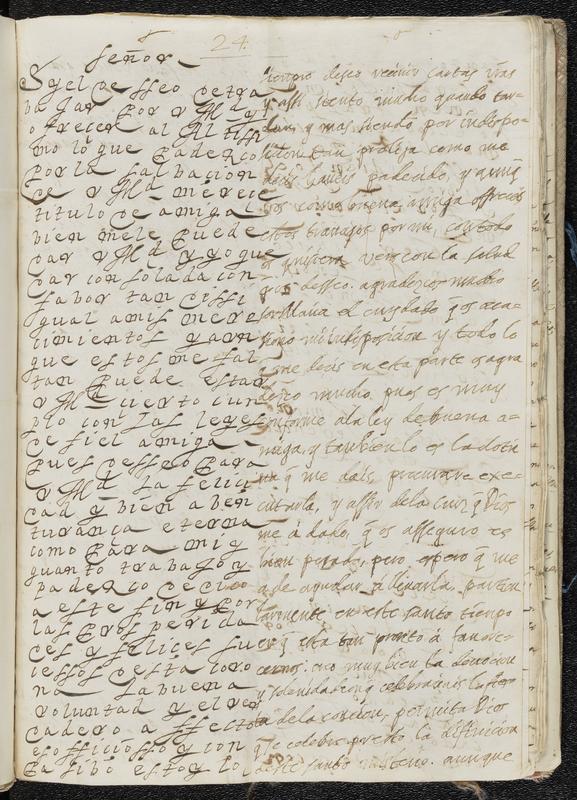 24
Señor
Sy el desseo de tra
bajar por v Md y
ofrecer al Altissi
mo lo que padezco
por la salbacion
de v Md merece
titulo de amiga
bien mele puede
dar v Md y yo que
dar consolada con
fabor tan dessi
gual amis mere
cimientos y aun
que estos me fal
tan puede estar
v Md cierto cun
plo con las leyes
de fiel amiga
pues desseo para
v Md la felici
dad y bien aben
turança eterna
como para mi y
quanto trabajo y
padezco dedico
a este fin y por
las prosperida
des y felices su
cessos desta coro
na la buena
voluntad y el ver
dadero affecto
es officiosso y con
pasibo estoy lo
siempre deseo recivir cartas vras
y assi siento mucho quando tar-
dan, y mas siendo por indispo-
sicion tan prolija como me
decis haveis padecido, y aunq̃
vos como buena amiga offreceis
estos trabajos por mi, con todo
os quisiera ver con la salud
que desseo. agradezco mucho
sor Maria el cuydado q̃ os oca-
siono mi indisposicion y todo lo
q̃ me decis en esta parte os agra
dezco mucho, pues es muy
conforme a la ley de buena a-
miga, y tambien lo es la dotri
na q̃ me dais, procurare exe-
cutarla, y assir de la cruz q̃ Dios
me à dado, q̃ os asseguro es
bien pesada, pero espero q̃ me
a de ayudar a llevarla, particu
larmente en este santo tiempo
en q̃ esta tan pronto à favore-
cernos. muy bien la devocion
y solenidad con q̃ celebrais la fiesta
de la concicion, permita Dios
q̃ se celebre presto la difinicion
deste santo misterio. aunque